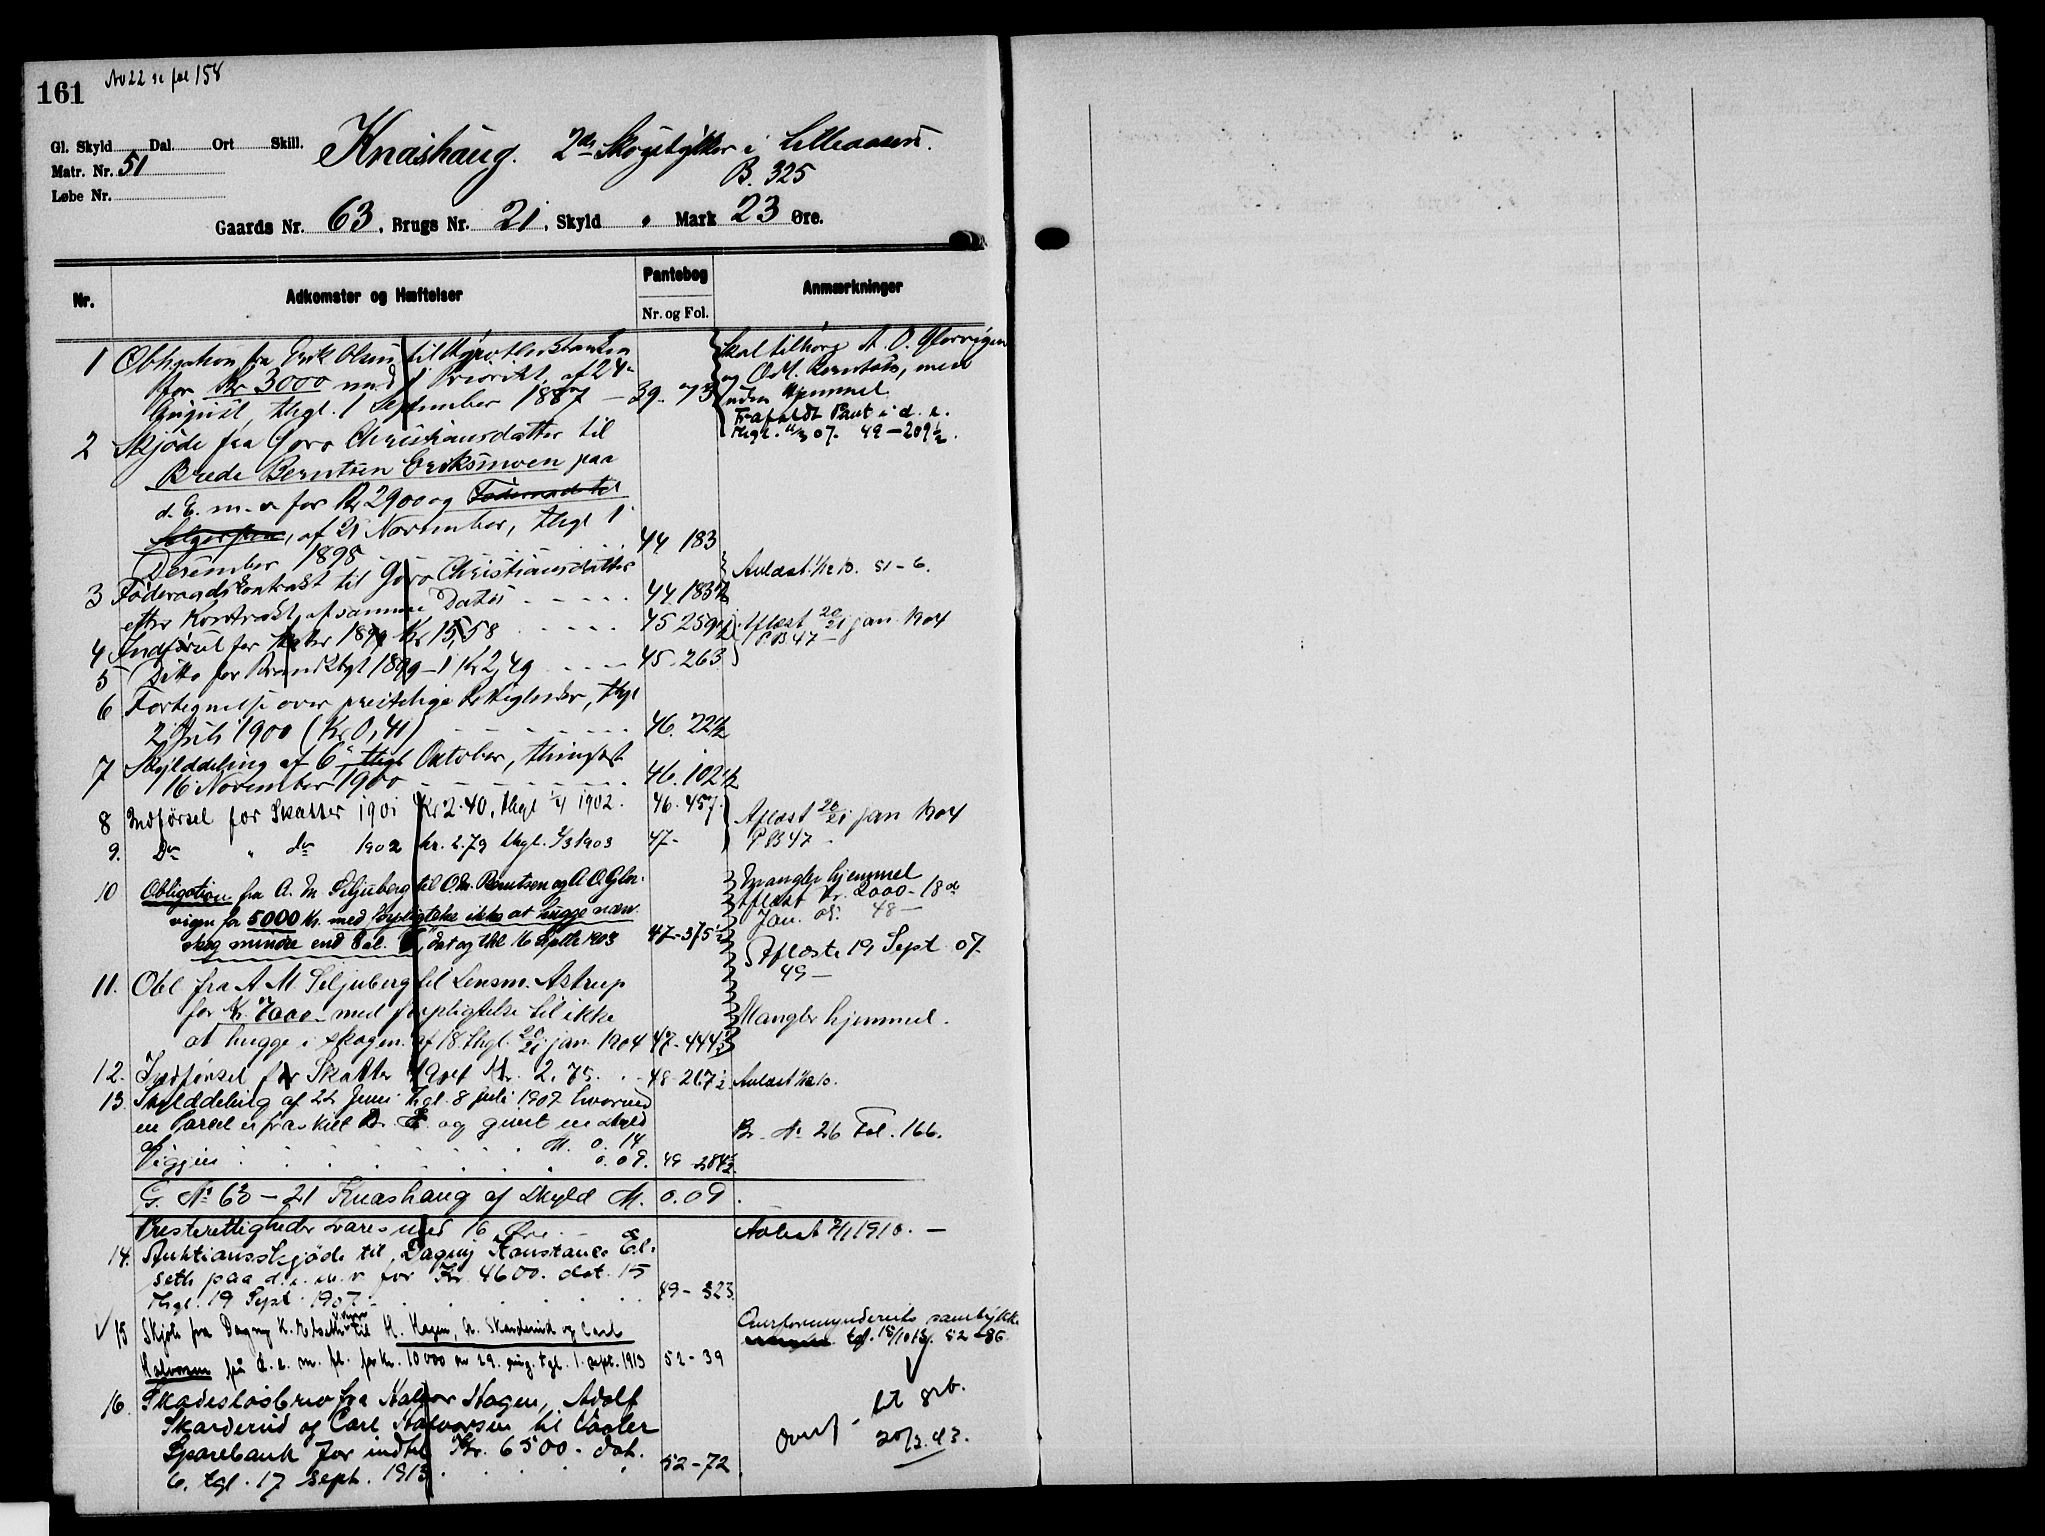 161 No 22 se fol 158
Gl. Skyld Dal. Ort Skill.
Matr. Nr. 51
Løbe Nr.
Knashaug. 2de Skogstykker i Lilleaasen.
B. 325
Gaards Nr. 63, Brugs Nr. 21, Skyld Mark 23 Øre.
Nr. Adkomster og Hæftelser Pantebog Nr. og Fol. Anmærkninger
1 Obligation fra Erik Olsen til Hypothekbanken
for Kr 3000 med 1 Priorit. af 24
August, thgl. 1 September 1887 — 39. 73
Skal tilhøre A. O. Glorvigen
og O. M. Berntsen, men
uden Hjemmel
Frafaldt Pant i d. e.
thgl. 07. 49-209½.
2 Skjøde fra Goro Christiansdatter til
Brede Berntsen Eriksmoen paa
d. E. m. v for Kr 2900 og Føderaad til
Sælgersken, af 21 November, thgl 1
December 1898 44 183
3 Føderaadskontrakt til Goro Christiansdatter
efter Kontrakt af samme Dato 44. 183½
Avlæst 10. 51-6.
4 Indførsel for Skatter 1899 Kr 15,58 45 259
5 Ditto for Brandktgt 1899 Kr 2,49 45-263
Aflæst 20/21 jan 1904
P.B 47 —
6 Fortegnelse over præstelige Rettigheder, thgl
2 Juli 1900 (Kr 0,41) 46. 22½
7 Skylddeling af 6 thgl Oktober, thinglæst
16 November 1900 46. 102½
8 Indførsel for Skatter 1901 Kr 2.40, thgl 1/4 1902. 46-457.
9. Do " do 1902 kr. 2.79 thgl. 1903 47-
Aflæst 20/21 jan 1904
P B 47 -
10 Obligation fra A. M. Seljuberg til O. M. Berntsen og A. O. Glor-
vigen for 5000 Kr. med forpligtelse ikke at hugge nav.
skog mindre end 8 al. dat og thl. 16 Septbr 1903 47-375½
Mangler hjemmel
Aflæst kr. 2000 - 18de
Jan. 05. 48 —
Aflæste 19 Sept 07
49 —
11. Obl fra A M Seljuberg til Lensm. Astrup
for Kr. 7000 - med forpligtelse til ikke
at hugge i skogen. af 18 thgl. 20/21 jan 1904 47-444½
Mangler hjemmel.
12. Indførsel for Skatter 1904 Kr. 2.75. 48-267½ Avlæst 10.
13. Skylddeling af 22 Juni thgl. 8 juli 1907 hvorved
en Parcel er fraskilt D. E. og givet en skyld
af M. 0.14
Igjen 0.09. 49-284½.
Br. No 26 Fol. 166.
G. No 63-21 Knashaug af Skyld M. 0.09.
Presterettigheder svares med 16 Øre.
Avlæst 7/1 1910. —
14. Auktionsskjøde til Dagny Konstance El-
seth paa d. e. m. v for Kr. 4600. dat. 15
thgl. 19 Sept 1907. 49-323
✓ 15 Skjøte fra Dagny K. Elseth til H. Hagen, A. Skarderud og Carl
Halvorsen på d. e. m. fl. for kr. 10000 av 29. aug. tgl. 1. sept. 1913 52-39
Overformynderiets samtykke
tgl. 18/10 13. 52-86
16. Skadesløsbrev fra Halvor Hagen, Adolf
Skarderud og Carl Halvorsen til Vaaler
Sparebank for indtil Kr. 6500 - dat.
6. tgl. 17 sept. 1913. 52-72.
Overf. til grb.
20/2.43.